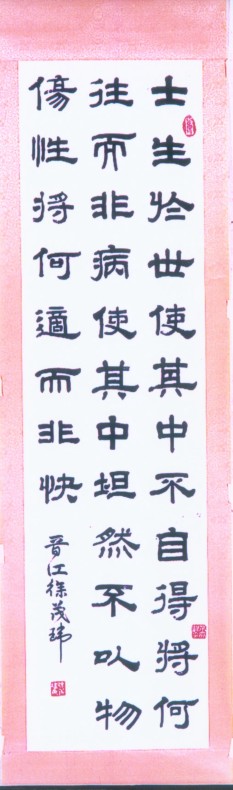 士生於世使其中不自得將何
往而非病使其中坦然不以物
傷性將何適而非快
晉江徐茂瑋